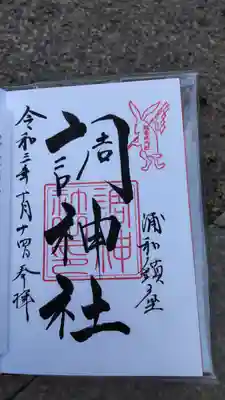 浦和鎮座
調神社
令和三年十月十四日参拝